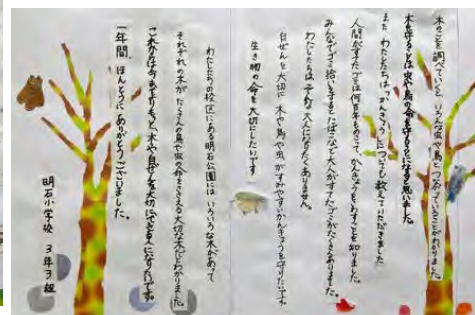 木のことを調べていくと、いろんな虫や鳥とつながっていることがわかりました。
木を守ることは虫や鳥の命を守ることになると思いました。
また、わたしたちは「かんきょう」についても教えていただきました。
人間がすてたゴミは何百年ものこって、かんきょうをこわすことを知りました。
みんなでゴミ拾いをするとたばこなど大人がすてたゴミがたくさんありました。
わたしたちは、そんな大人になりたくありません。
自ぜんを大切に、木や鳥や虫がすみやすいかんきょうを守りたいです。
生き物の命を大切にしたいです。
わたしたちの校区にある明石公園にはいろいろな木があって
それぞれの木がたくさんの鳥や虫の命をささえる大切な木だとわかりました。
これからは今までよりもっと、木や自ぜんを大切にできる人になりたいです。
一年間、ほんとうにありがとうございました。
明石小学校 3年3組